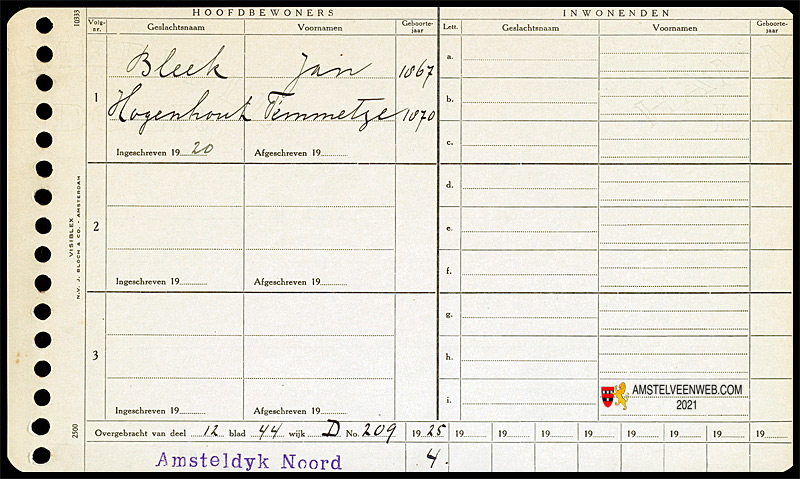 HOOFDBEWONERS
INWONENDEN
Volg-nr.
Geslachtsnaam
Voornamen
Geboorte-jaar
Lett.
Geslachtsnaam
Voornamen
Geboorte-jaar
1
Bleek Jan 1867
Hogenhout Temmetze 1870
Ingeschreven 19 20 Afgeschreven 19
2
Ingeschreven 19 Afgeschreven 19
3
Ingeschreven 19 Afgeschreven 19
a.
b.
c.
d.
e.
f.
g.
h.
i.
AMSTELVEENWEB.COM
2021
Overgebracht van deel 12 blad 44 wijk D No. 209 19 25 19 19 19 19 19 19 19 19
Amsteldyk Noord 4.
10333
VISIBLEX
N.V. J. BLOCH & CO. - AMSTERDAM
2500